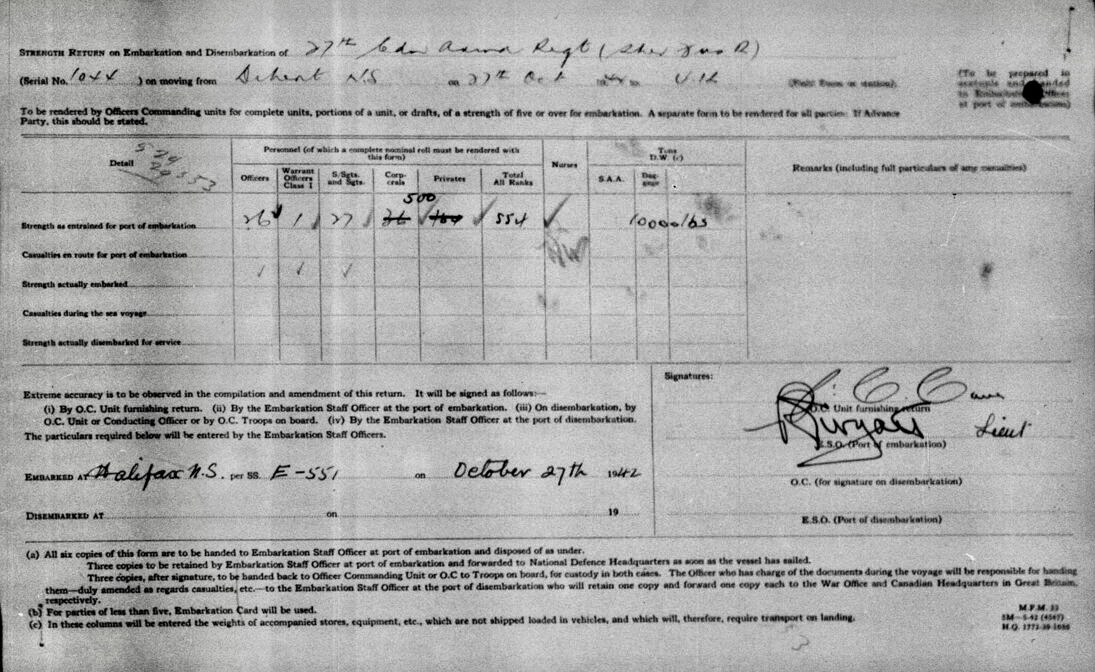 STRENGTH RETURN on Embarkation and Disembarkation of 27th Cdn Armd Regt (Sher Fus R)
(Serial No. 1044 ) on moving from Debert N.S on 27th Oct 19 to U.K (Field Force or station).
(To be prepared in
at port of embarkation)
To be rendered by Officers Commanding units for complete units, portions of a unit, or drafts, of a strength of five or over for embarkation. A separate form to be rendered for all parties. If Advance
Party, this should be stated.
Detail
Personnel (of which a complete nominal roll must be rendered with
this form)
Nurses
Tons
D.W. (c)
Remarks (including full particulars of any casualties)
Officers
Warrant
Officers
Class I
S/Sgts.
and Sgts.
Corp-
orals
Privates
Total
All Ranks
S.A.A.
Bag-
gage
500
Strength as entrained for port of embarkation 26 1 27 36 554 10000 lbs
Casualties en route for port of embarkation
Strength actually embarked
Casualties during the sea voyage
Strength actually disembarked for service
Extreme accuracy is to be observed in the compilation and amendment of this return. It will be signed as follows:—
(i) By O.C. Unit furnishing return. (ii) By the Embarkation Staff Officer at the port of embarkation. (iii) On disembarkation, by
O.C. Unit or Conducting Officer or by O.C. Troops on board. (iv) By the Embarkation Staff Officer at the port of disembarkation.
The particulars required below will be entered by the Embarkation Staff Officers.
EMBARKED AT Halifax N.S. per SS. E-551 on October 27th 1942
DISEMBARKED AT on 19
Signatures:
O.C. Unit furnishing return
Lieut
E.S.O. (Port of embarkation)
O.C. (for signature on disembarkation)
E.S.O. (Port of disembarkation)
(a) All six copies of this form are to be handed to Embarkation Staff Officer at port of embarkation and disposed of as under.
Three copies to be retained by Embarkation Staff Officer at port of embarkation and forwarded to National Defence Headquarters as soon as the vessel has sailed.
Three copies, after signature, to be handed back to Officer Commanding Unit or O.C to Troops on board, for custody in both cases. The Officer who has charge of the documents during the voyage will be responsible for handing
them—duly amended as regards casualties, etc.—to the Embarkation Staff Officer at the port of disembarkation who will retain one copy and forward one copy each to the War Office and Canadian Headquarters in Great Britain,
respectively.
(b) For parties of less than five, Embarkation Card will be used.
(c) In these columns will be entered the weights of accompanied stores, equipment, etc., which are not shipped loaded in vehicles, and which will, therefore, require transport on landing.
M.F.M. 33
5M—5-42 (4547)
H.Q. 1772-39-1086